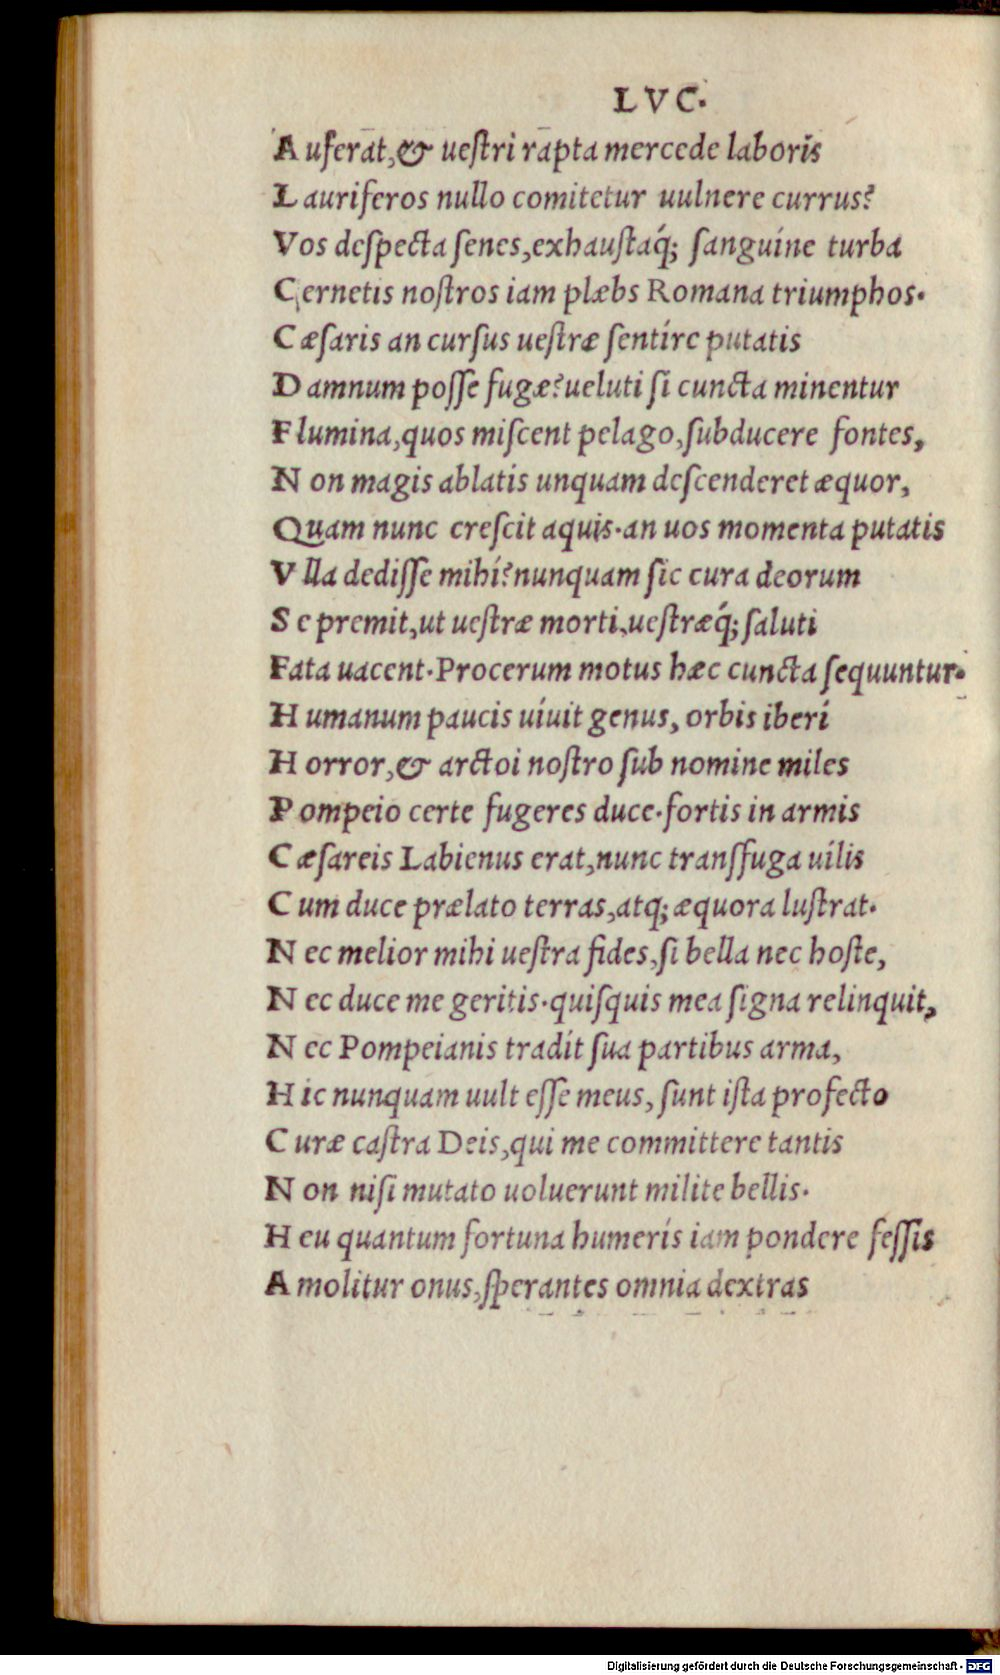 LVC.
A uferat,& ueſtri rapta mercede laboris
L auriferos nullo comitetur uulnere currus?
Vos deſpecta ſenes,exhauſtaq́; ſanguine turba
Cernetis noſtros iam plæbs Romana triumphos.
C æſaris an curſus ueſtræ ſentire putatis
D amnum poſſe fugæ?ueluti ſi cuncta minentur
F lumina,quos miſcent pelago,ſubducere fontes,
N on magis ablatis unquam deſcenderet æquor,
Quam nunc creſcit aquis.an uos momenta putatis
V lla dediſſe mihi?nunquam ſic cura deorum
S e premit,ut ueſtræ morti,ueſtræq́; ſaluti
Fata uacent.Procerum motus hæc cuncta ſequuntur.
H umanum paucis uiuit genus, orbis iberi
H orror,& arctoi noſtro ſub nomine miles
P ompeio certe fugeres duce.fortis in armis
C æſareis Labienus erat,nunc tranſfuga uilis
C um duce prælato terras,atq; æquora luſtrat.
N ec melior mihi ueſtra fides,ſi bella nec hoſte,
N ec duce me geritis.quiſquis mea ſigna relinquit,
N ec Pompeianis tradit ſua partibus arma,
H ic nunquam uult eſſe meus, ſunt iſta profecto
C uræ caſtra Deis,qui me committere tantis
N on niſi mutato uoluerunt milite bellis.
H eu quantum fortuna humeris iam pondere feſſis
A molitur onus,ſperantes omnia dextras
Digitalisierung gefördert durch die Deutsche Forschungsgemeinschaft - DFG